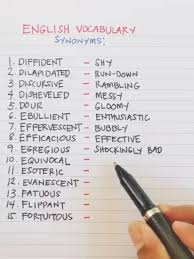 ENGLISH VOCABULARY
SYNONYMS:
1. DIFFIDENT - SHY
2. DILAPIDATED - RUN-DOWN
3. DISCURSIVE - RAMBLING
4. DISHEVELED - MESSY
5. DOUR - GLOOMY
6. EBULLIENT - ENTHUSIASTIC
7. EFFERVESCENT - BUBBLY
8. EFFICACIOUS - EFFECTIVE
9. EGREGIOUS - SHOCKINGLY BAD
10. EQUIVOCAL -
11. ESOTERIC -
12. EVANESCENT -
13. FATUOUS -
14. FLIPPANT -
15. FORTUITOUS -